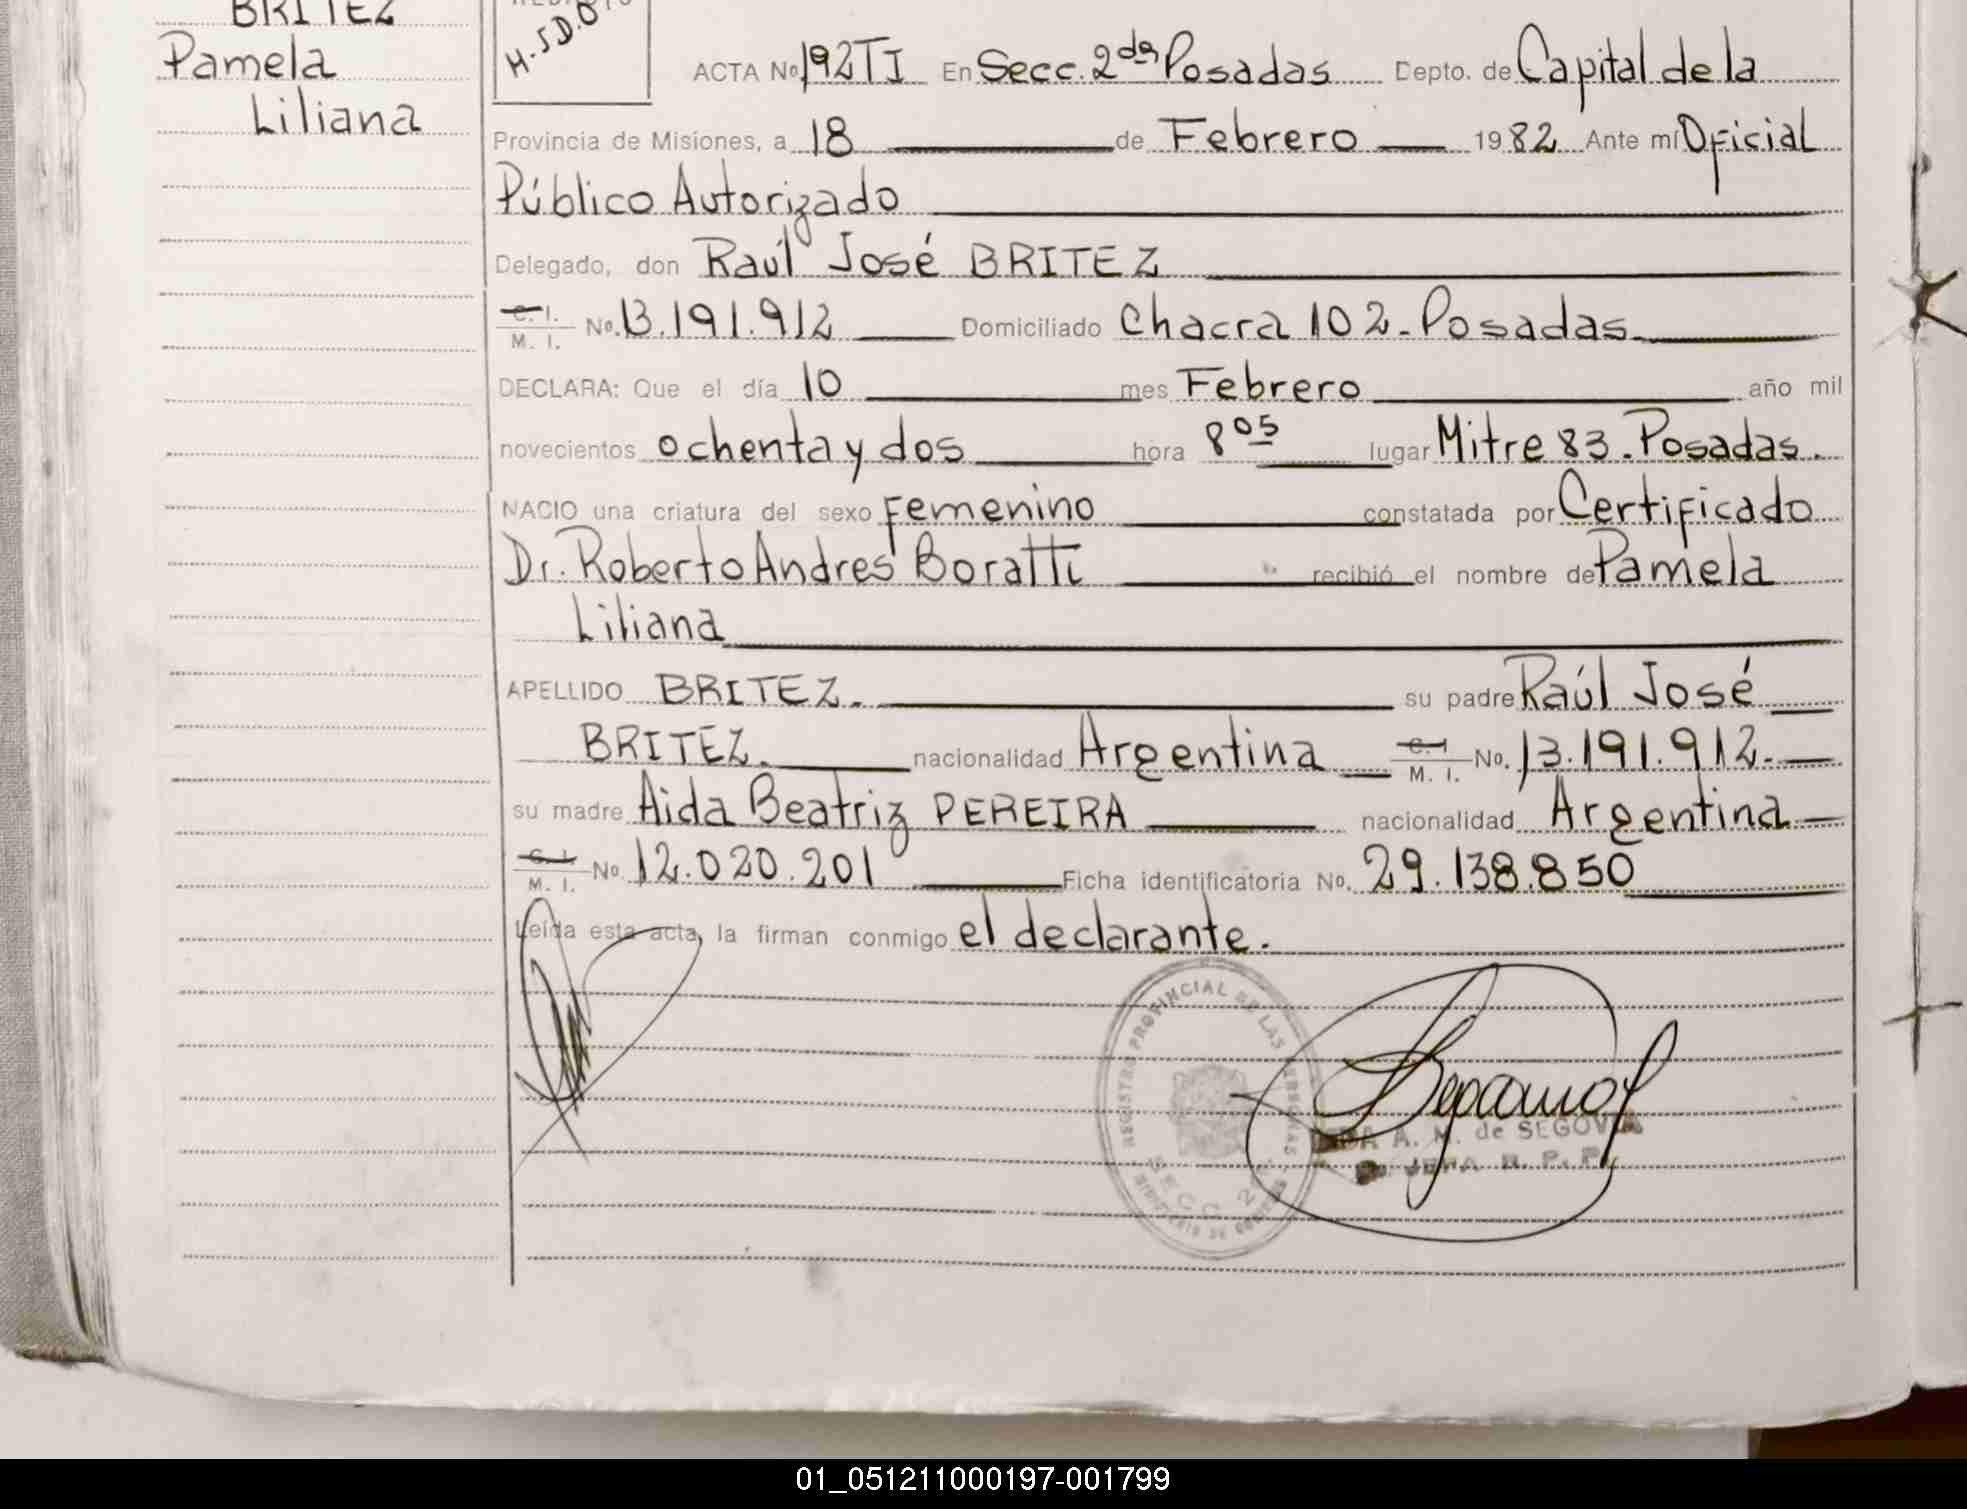 BRITEZ
Pamela
Liliana
H.S.D.O
ACTA No 192TI En Secc. 2da Posadas Depto. de Capital de la
Provincia de Misiones, a 18 de Febrero 1982 Ante mí Oficial
Público Autorizado
Delegado, don Raúl José BRITEZ
C. I.
M. I. No. 13.191.912 Domiciliado Chacra 102-Posadas.
DECLARA: Que el día 10 mes Febrero año mil
novecientos ochenta y dos hora 8 05 lugar Mitre 83.Posadas.
NACIO una criatura del sexo Femenino constatada por Certificado
Dr. Roberto Andres Boratti recibió el nombre de Pamela
Liliana
APELLIDO BRITEZ. su padre Raúl José
BRITEZ. nacionalidad Argentina C. I.
M. I. No. 13.191.912.
su madre Aida Beatriz PEREIRA nacionalidad Argentina
C. I.
M. I. No. 12.020.201 Ficha identificatoria No. 29.138.850
Leída esta acta, la firman conmigo el declarante.
REGISTRO PROVINCIAL DE LAS PERSONAS
SECC 2
MINISTERIO DE GOBIERNO
A. M. de SEGOVIA
R. P. P.
01_051211000197-001799